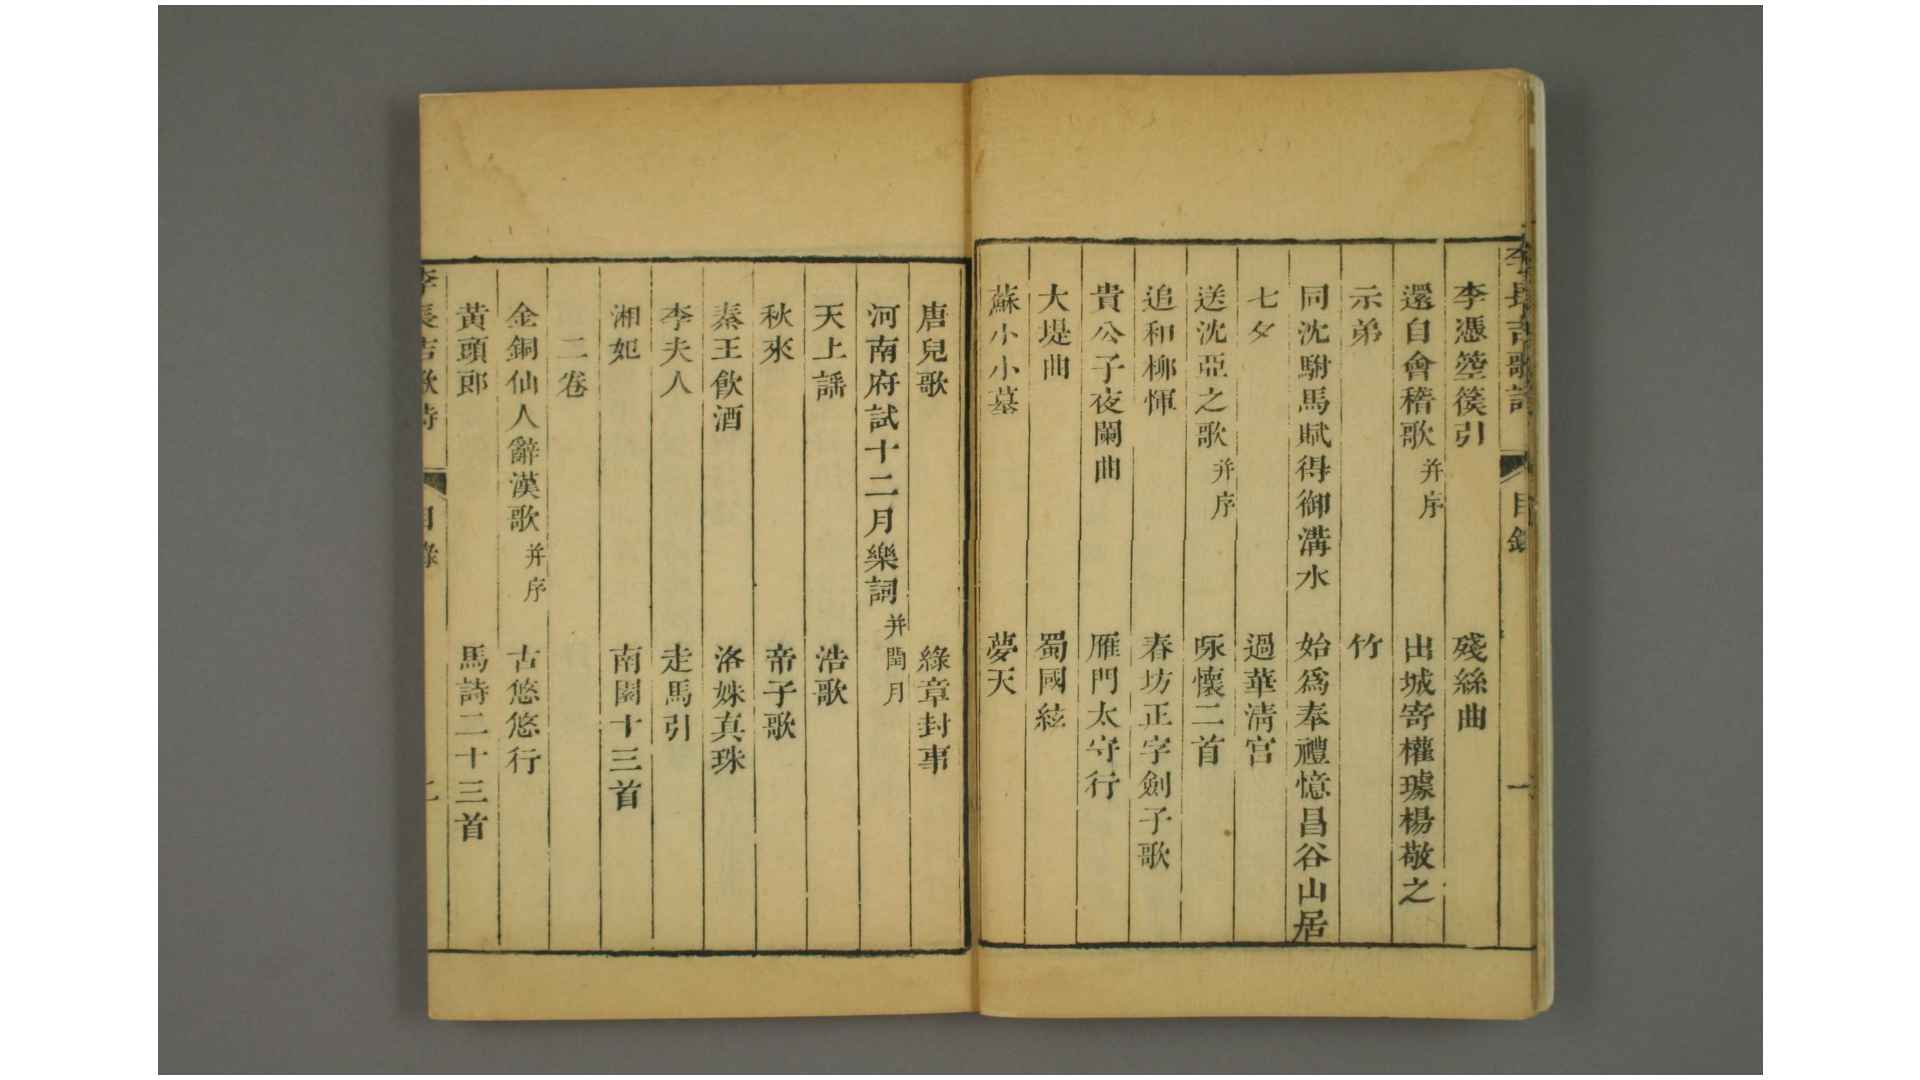 李長吉歌詩 目錄 一
李憑箜篌引 殘絲曲
還自會稽歌并序 出城寄權璩楊敬之
示弟 竹
同沈駙馬賦得御溝水 始爲奉禮憶昌谷山居
七夕 過華清宮
送沈亞之歌并序 咏懷二首
追和柳惲 春坊正字劍子歌
貴公子夜闌曲 雁門太守行
大堤曲 蜀國絃
蘇小小墓 夢天
唐兒歌 綠章封事
河南府試十二月樂詞并閏月
天上謡 浩歌
秋來 帝子歌
秦王飲酒 洛姝真珠
李夫人 走馬引
湘妃 南園十三首
二卷
金銅仙人辭漢歌并序 古悠悠行
黃頭郎 馬詩二十三首
李長吉歌詩 目錄 二